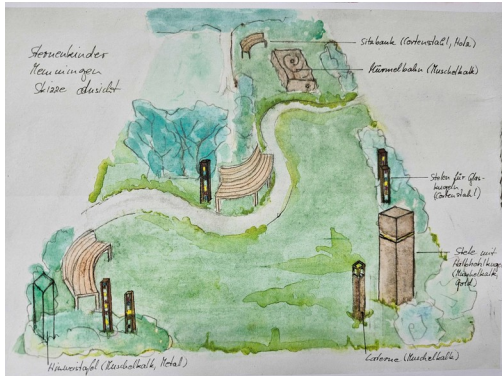 Sternenkinder
Memmingen
Skizze Ansicht
Sitzbank (Cortenstahl, Holz)
Murmelbahn (Muschelkalk)
Stelen für Glas-
kugeln
(Cortenstahl)
Stele mit
(Muschelkalk,
Gold)
Laterne (Muschelkalk)
Hinweistafel (Muschelkalk, Metal)